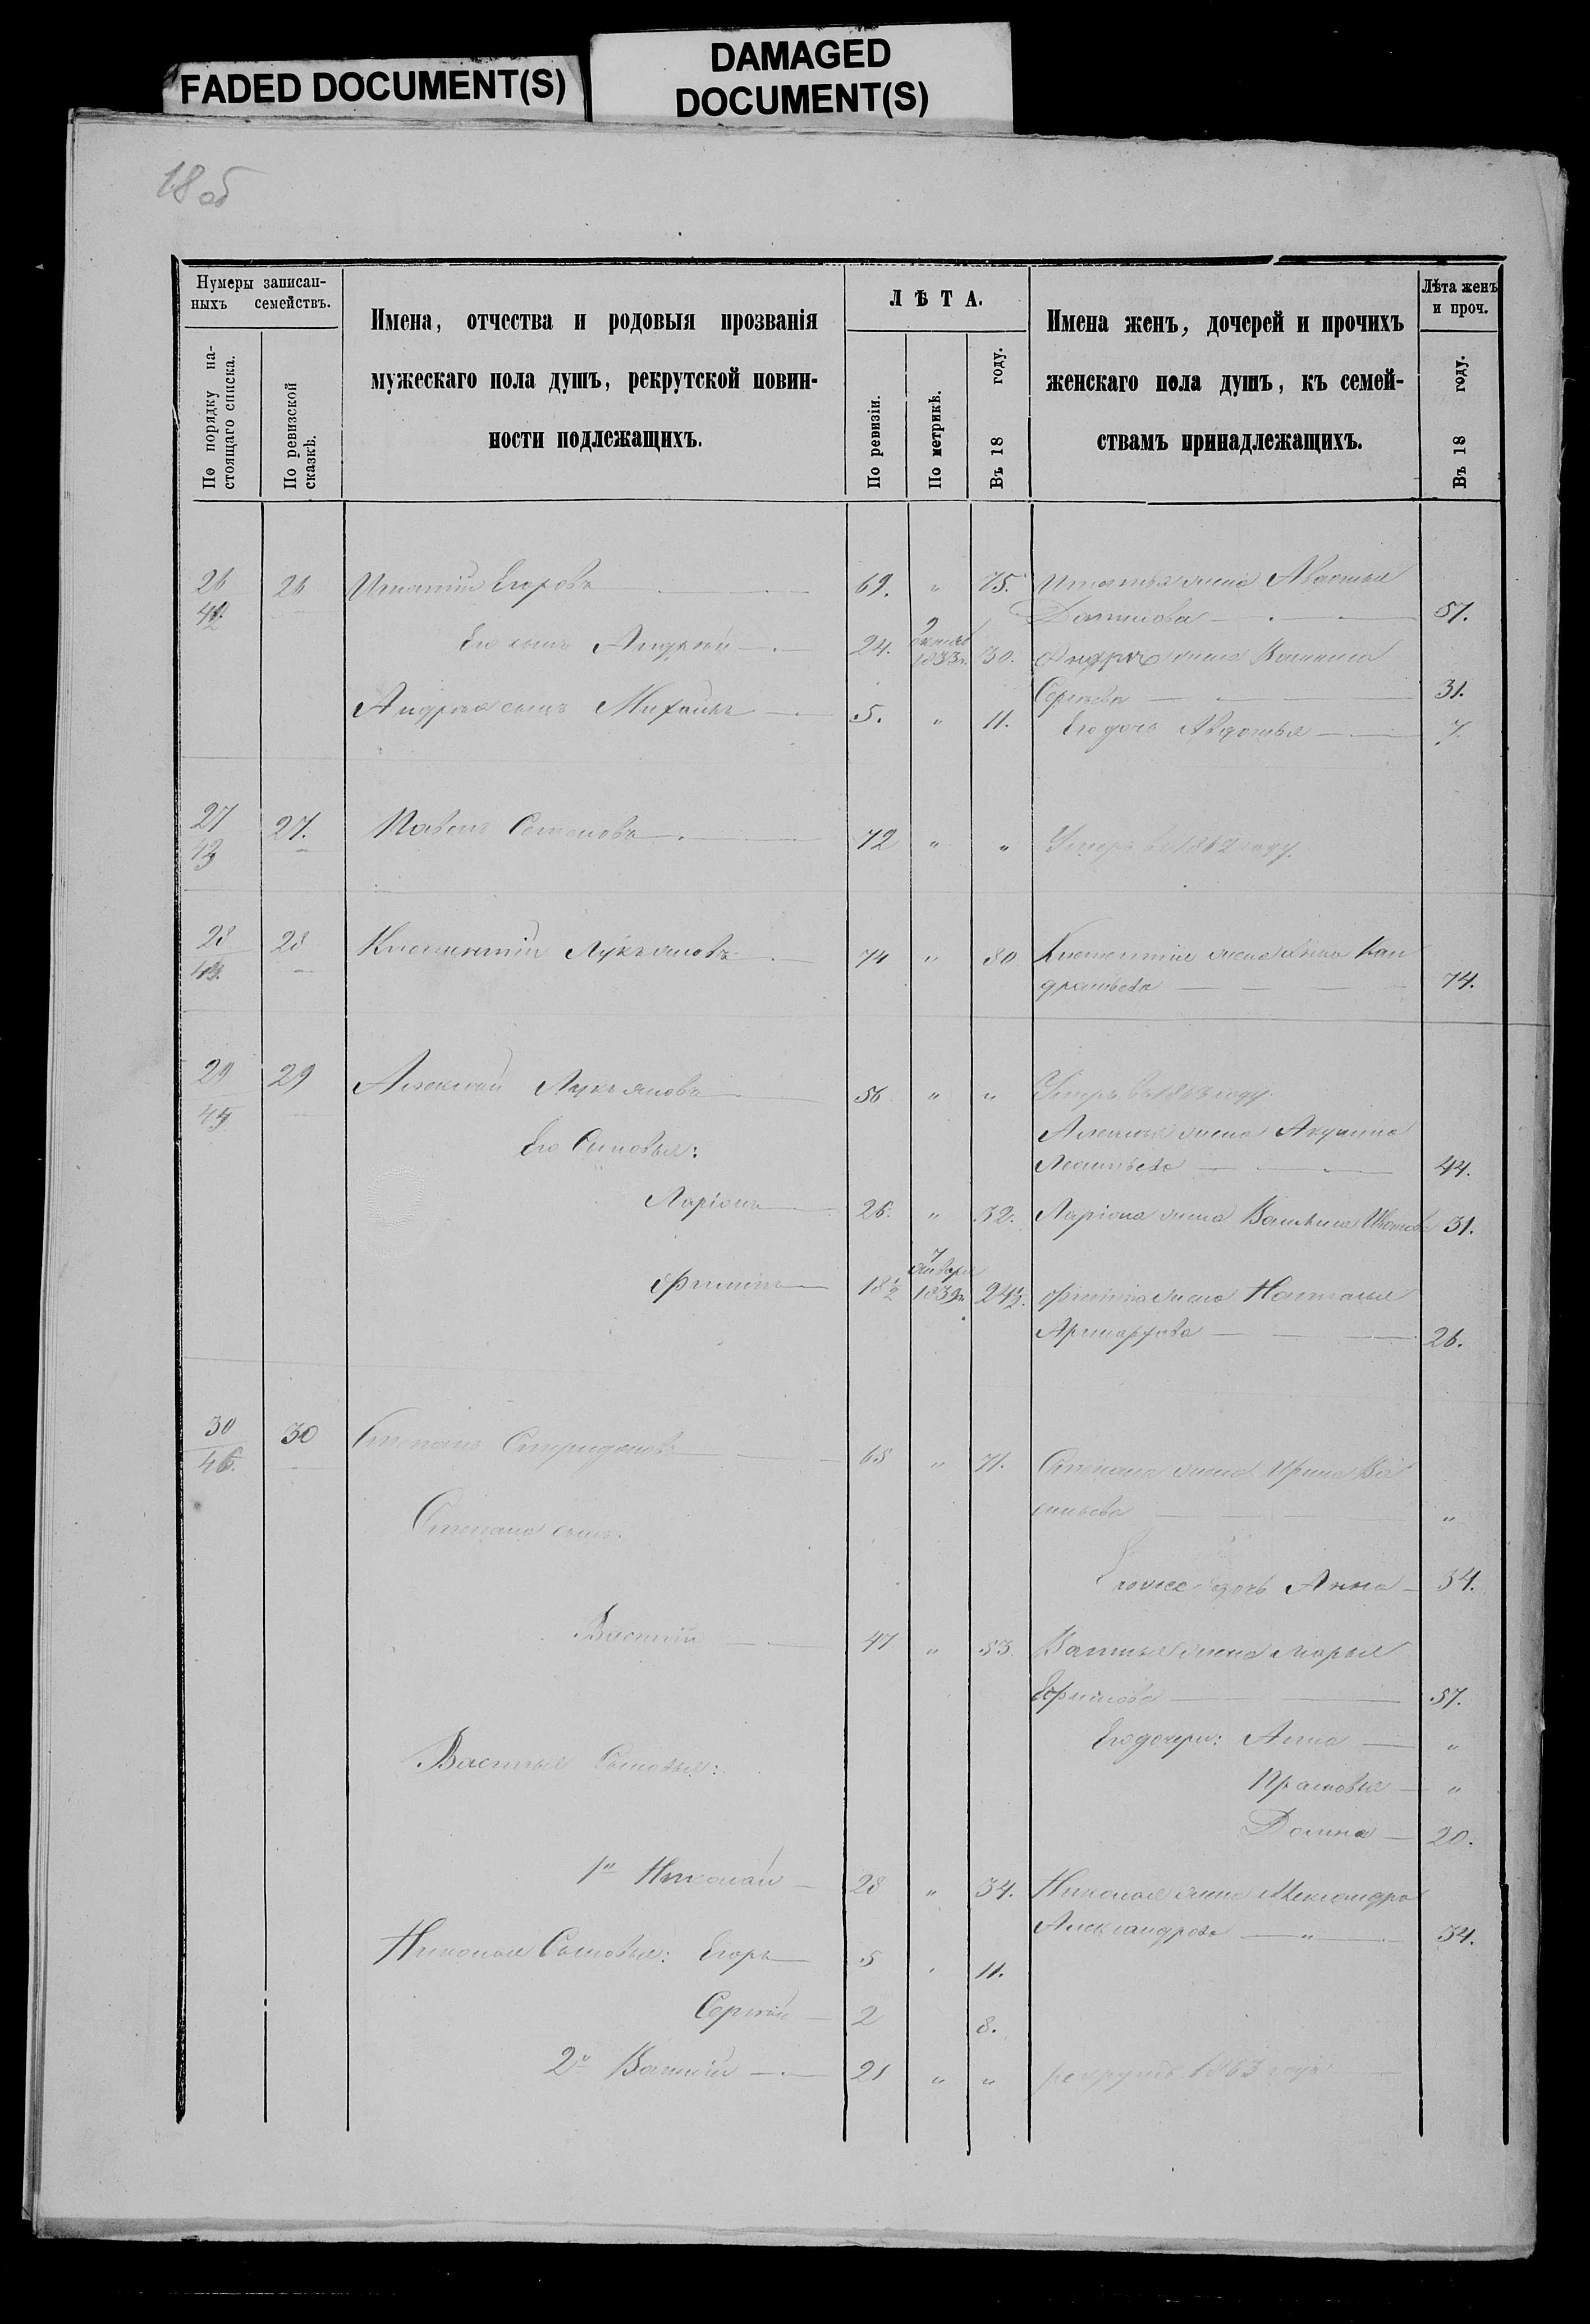 FADED DOCUMENT(S)
DAMAGED
DOCUMENT(S)
18 об
Нумеры записан-
ныхъ семействъ.
По порядку на-
стоящаго списка.
По ревизской
сказкѣ.
Имена, отчества и родовыя прозванія
мужескаго пола душъ, рекрутской повин-
ности подлежащихъ.
ЛѢТА.
По ревизіи.
По метрикѣ.
Въ 18 году.
Имена женъ, дочерей и прочихъ
женскаго пола душъ, къ семей-
ствамъ принадлежащихъ.
Лѣта женъ
и проч.
Въ 18 году.
26 26 Игнатій Егоровъ 69. " 75. Игнатья жена Авдотья
42 Данилова 57.
Его сынъ Андрей 24. 9 октяб 1833г. 30. Андрея жена Василиса
Сергѣева 31.
Андрея сынъ Михайлъ 5. " 11. Его дочь Авдотья 7.
27 27. Павелъ Семеновъ 72 " " Умеръ въ 1862 году.
43
28 28 Климентій Лукьяновъ 74 " 80 Климентія жена Анна Кон
44. дратьева 74.
29 29 Алексѣй Лукьяновъ 56 " " Умеръ въ 1863 году.
45 Алексѣя жена Акулина
Его Сыновья: Леонтьева 44.
Ларіонъ 26. " 32. Ларіона жена Василиса 31.
Филипъ 18½ 7 января 1839г. 24½. Филипа жена Наталья
26.
30 30 Степанъ Спиридоновъ 65 " 71. Степана жена Ирина Ва
46. сильева "
Степана сынъ:
дочь Анна 34.
Василій 47 " 53. Василья жена Марья
Ефимова 57.
Его дочери: Анна "
Василья Сыновья:
Прасковья "
Домна 20.
1й Николай 28 " 34. Николая жена Александра
Александрова " 34.
Николая Сыновья: Егоръ 5 " 11.
Сергѣй 2 8.
2й Василій 21 " " рекрутъ 1863 года